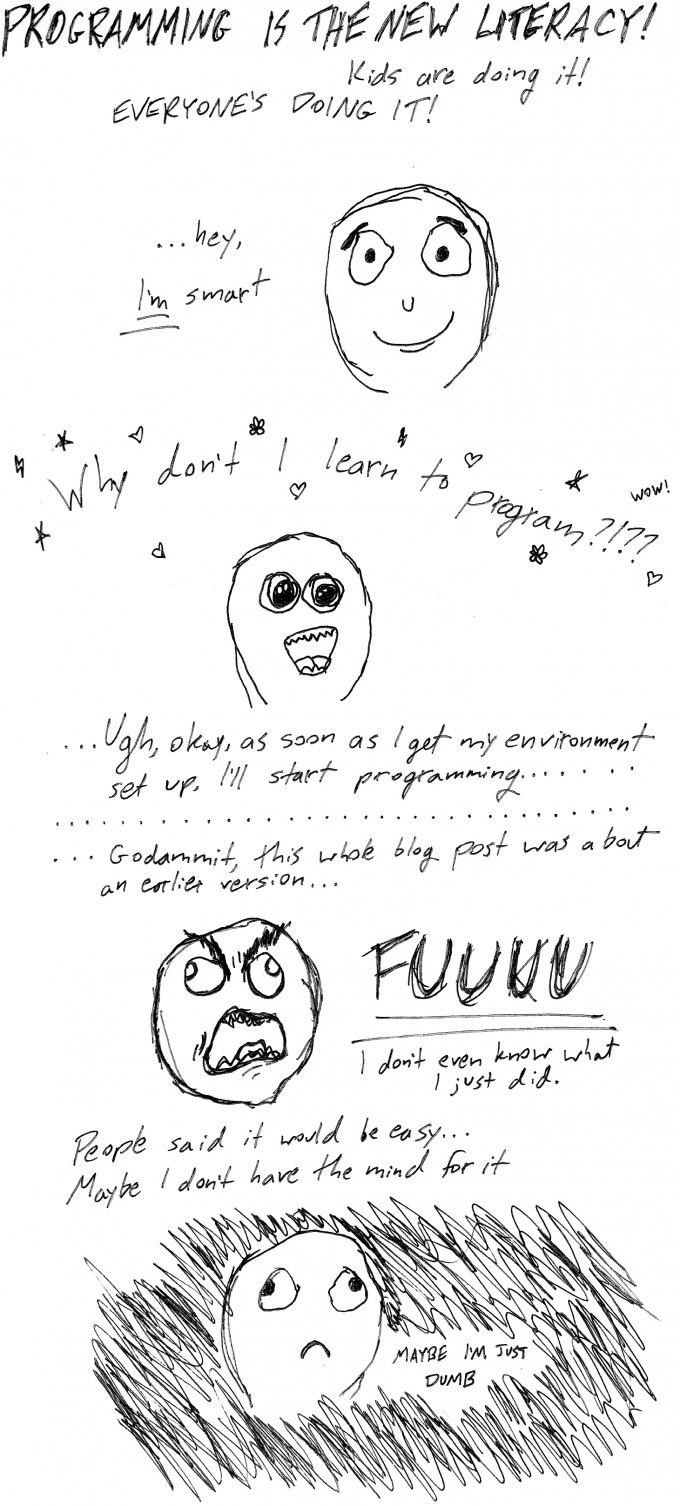 PROGRAMMING IS THE NEW LITERACY!
Kids are doing it!
EVERYONE'S DOING IT!
...hey,
I'm smart
Why don't I learn to program?!??
wow!
...Ugh, okay, as soon as I get my environment
set up, I'll start programming.........
...................................
... Godammit, this whole blog post was about
an earlier version...
FUUUU
I don't even know what
I just did.
People said it would be easy...
Maybe I don't have the mind for it
MAYBE I'M JUST
DUMB